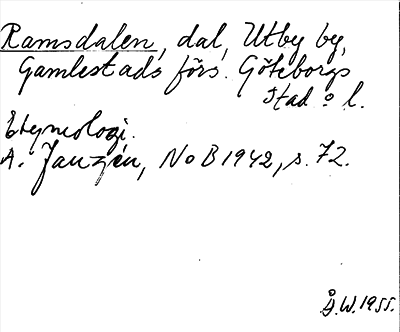 Ramsdalen, dal, Utby by,
Gamlestads förs. Göteborgs
stad o l.
Etymologi.
A. Janzén, NoB 1942, s. 72.
Å.W. 1955.